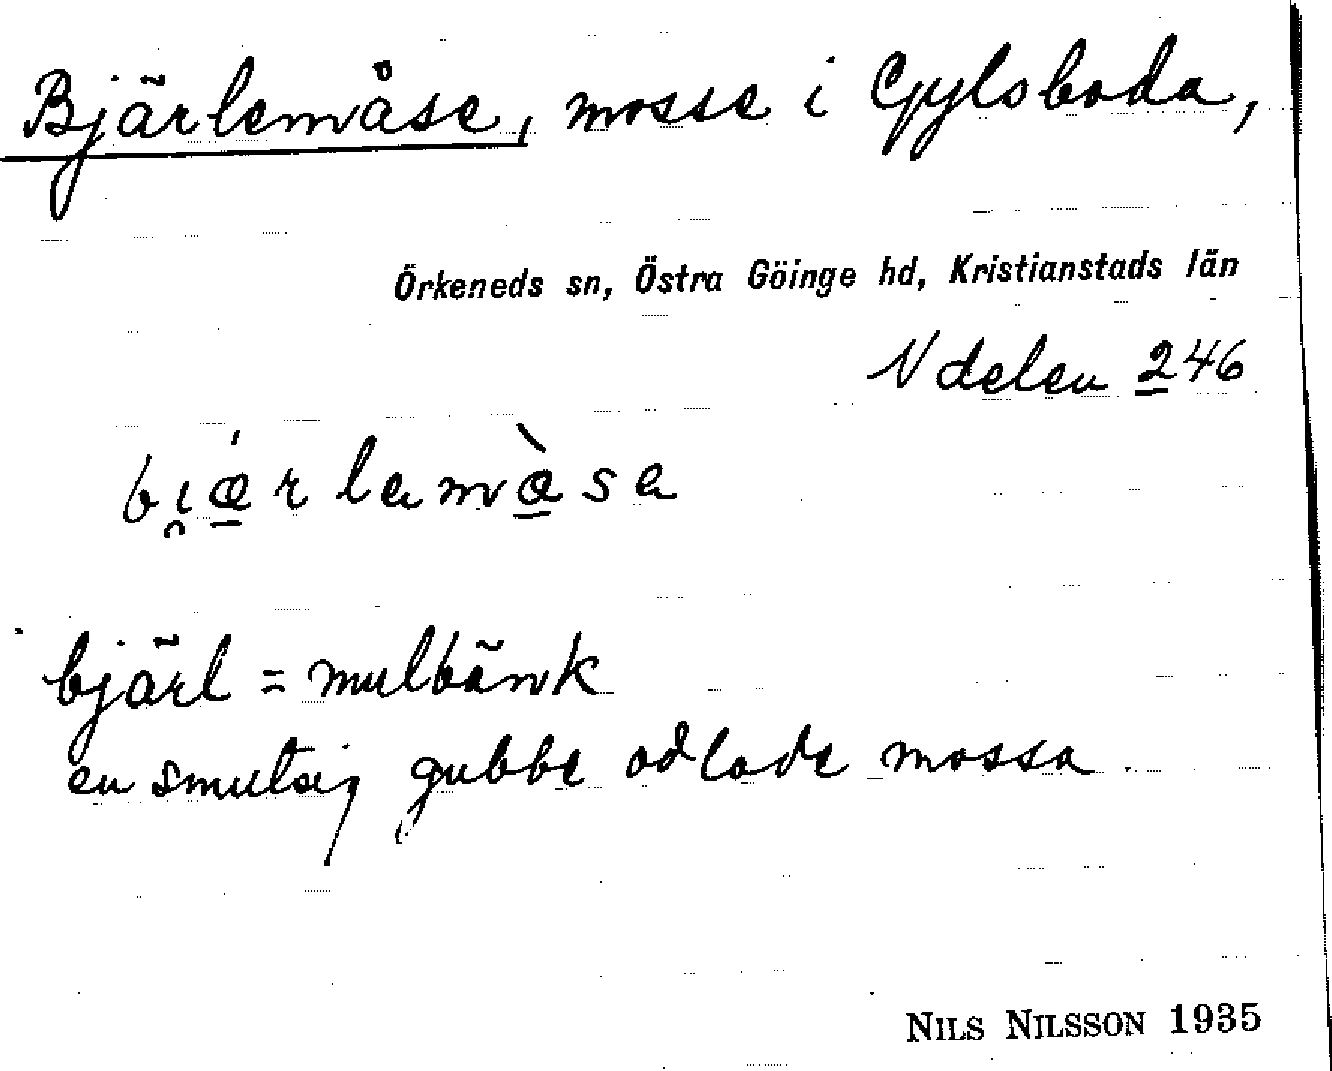 Bjärlemåse, mosse i Gylsboda,
Örkeneds sn, Östra Göinge hd, Kristianstads län
N delen 246
bjärl = mulbänk
en smutsig gubbe odlade mossa
NILS NILSSON 1935